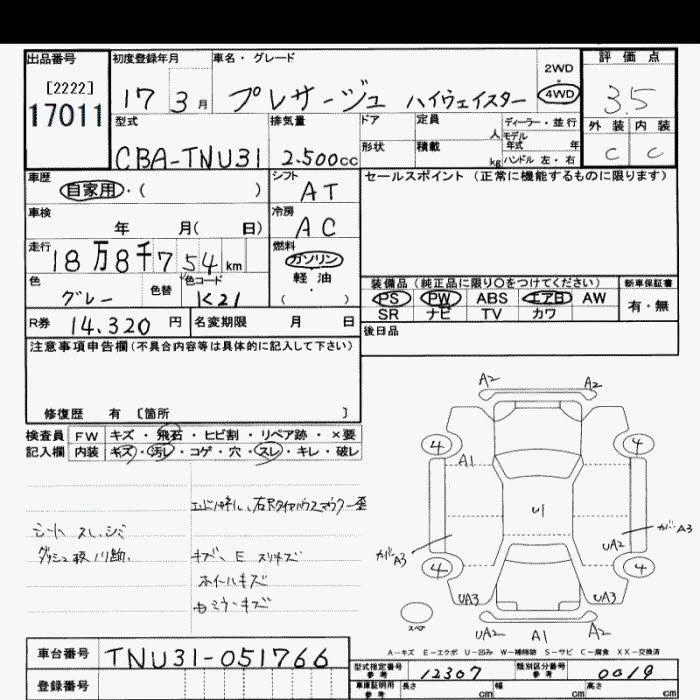 出品番号
[2222]
17011
初度登録年月
17 3月
車名・グレード
プレサージュ ハイウェイスター
2WD
・
4WD
評価点
3.5
外装 内装
C C
型式
CBA-TNU31
排気量
2.500cc
ドア
形状
定員
人
積載
kg
ディーラー・並行
モデル
年式 年
ハンドル 左・右
車歴
自家用・( )
シフト
AT
セールスポイント (正常に機能するものに限ります)
車検
年 月( 日)
冷房
AC
走行
18万8千754km
燃料
ガソリン
・
軽油
( )
色
グレー
色替
色コード
K21
装備品 (純正品に限り○をつけてください)
新車保証書
PS PW ABS エアB AW
有・無
SR ナビ TV カワ
R券 14.320円
名変期限 月 日
後日品
注意事項申告欄(不具合内容等は具体的に記入して下さい)
修復歴 有 〔箇所 〕
検査員
記入欄
FW キズ・飛石・ヒビ割・リペア跡・×要
内装 キズ・汚レ・コゲ・穴・スレ・キレ・破レ
シート スレ、シミ
キズ、E スリキズ
ホイールキズ
A2 A2
4 4
A1
U1
カバーA3
UA2
カバーA3
4 4
UA3 UA3
スペア
UA2 A1 A2
A-キズ E-エクボ U-凹み W-補修跡 S-サビ C-腐食 XX-交換済
車台番号
TNU31-051766
登録番号
型式指定番号
参考
12307
類別区分番号
参考
0019
車庫証明用
参考
長さ cm
幅 cm
高さ cm